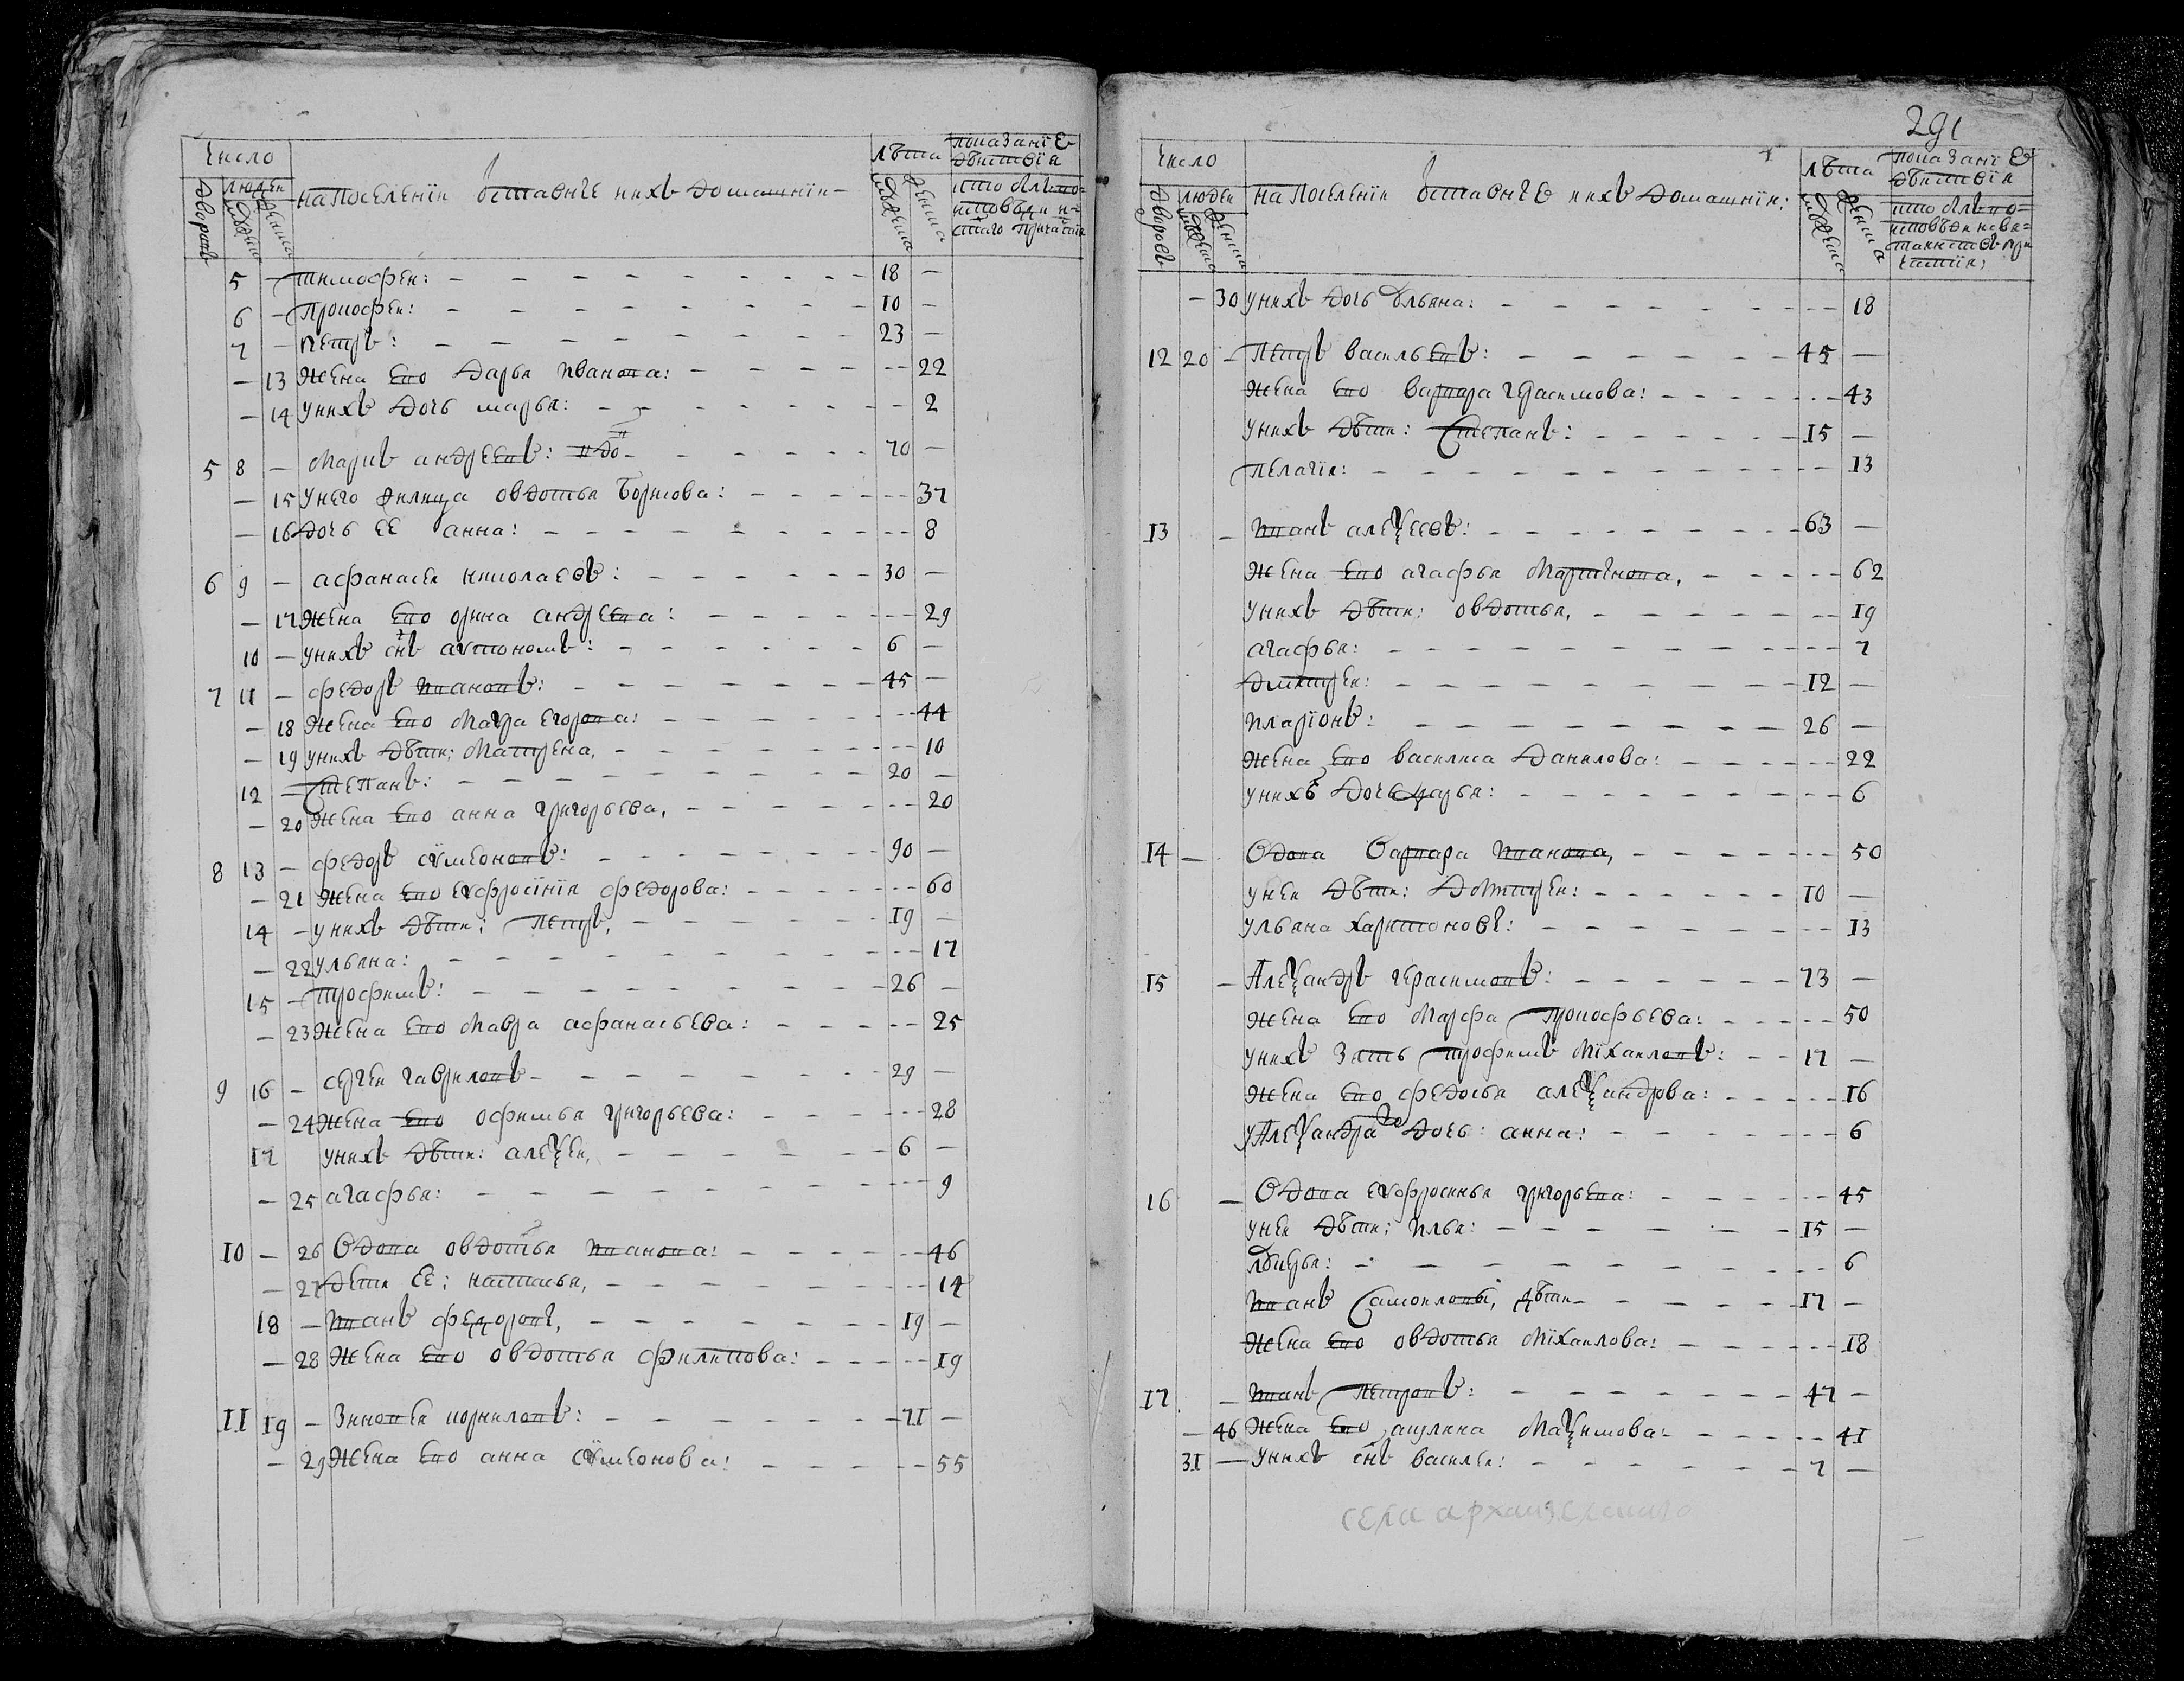 Число
людей
Дворовъ
мужеска
женска
На поселении оставшие и ихъ домашнии
Лѣта
мужеска
женска
Показание
действия
кто былъ но
исповѣди и
стаго причастия
5 — Тимофей: 18 —
6 — Прокофей: 10 —
7 — Петръ: 23 —
— 13 Жена ево Дарья Иванова: — 22
— 14 у нихъ дочь Марья: — 2
5 8 — Маркъ Андреевъ: вдо 70 —
— 15 у него жилица Овдотья Борисова: — 37
— 16 дочь ее Анна: — 8
6 9 — Афанасей Николаевъ: 30 —
— 17 Жена ево Орина Андреева: — 29
10 — у нихъ снъ Аѵтономъ: 6 —
7 11 — Федоръ Ивановъ: 45 —
— 18 Жена ево Маѵра Егорова: — 44
— 19 у нихъ дѣти: Матрена, — 10
12 — Степанъ: 20 —
— 20 Жена ево Анна Григорьева, — 20
8 13 — Федоръ Сѵмеоновъ: 90 —
— 21 Жена ево Еѵфросiнiя Федорова: — 60
14 — у нихъ дѣти: Петръ, 19 —
— 22 Ульяна: — 17
15 — Трофимъ: 26 —
— 23 Жена ево Мавра Афанасьева: — 25
9 16 — Сергей Гавриловъ 29 —
— 24 Жена ево Офимья Григорьева: — 28
17 у нихъ дѣти: Алеѯей, 6 —
— 25 Агафья: — 9
10 — 26 Вдова Овдотья Иванова: — 46
— 27 дети ее: Наталья, — 14
18 — Иванъ Федоровъ, 19 —
— 28 Жена ево Овдотья Филипова: — 19
11 19 — Зиновей Корниловъ: 71 —
— 29 Жена ево Анна Сѵмеонова: — 55
291
Число
людей
Дворовъ
мужеска
женска
На поселении оставшие и ихъ домашнии:
Лѣта
мужеска
женска
Показание
действия
кто былъ но
исповѣди и свя
таинствъ при
частия;
— 30 у нихъ дочь Ульяна: — 18
12 20 — Петръ Васильевъ: 45 —
Жена ево Варвара Герасимова: — 43
у нихъ дѣти: Степанъ: 15 —
Пелагiя: — 13
13 — Иванъ Алеѯеевъ: 63 —
Жена ево Агафья Мартинова, — 62
у нихъ дѣти: Овдотья, — 19
Агафья: — 7
Дмитрей: 12 —
Иларiонъ: 26 —
Жена ево Василиса Данилова: — 22
у нихъ дочь Дарья: — 6
14 — Вдова Варвара Иванова, — 50
у ней дѣти: Дмитрей: 10 —
Ульяна Харитоновы: — 13
15 — Алеѯандръ Герасимовъ: 73 —
Жена ево Марфа Прокофьева: — 50
у нихъ зять Трофимъ Мiхаиловъ: 17 —
Жена ево Федосья Алеѯандрова: — 16
у Алеѯандра же дочь: Анна: — 6
16 — Вдова Еѵфросинья Григорьева: — 45
у ней дѣти: Илья: 15 —
— 6
Иванъ Самоиловы, дѣти 17 —
Жена ево Овдотья Мiхаилова: — 18
17 — Иванъ Петровъ: 47 —
— 46 Жена ево Акулина Маѯимова: — 41
31 — у нихъ снъ Василей: 7 —
села архангелскаго